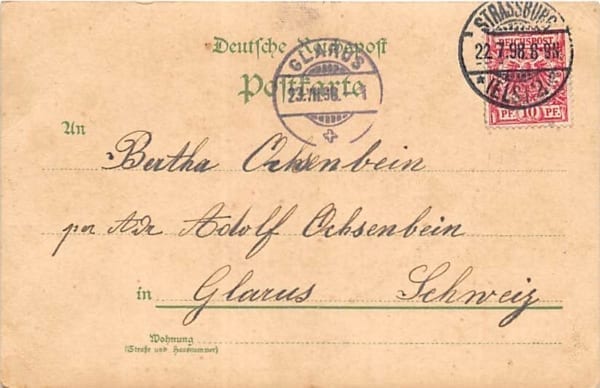 Deutsche Reichspost
Postkarte
STRASSBURG
22.7.98.8-9N.
*(ELS.)2.*
REICHSPOST
PF. 10 PF.
GLARUS
23.VII.98.-1
An
Bertha Ochsenbein
per Adr Adolf Ochsenbein
in Glarus Schweiz
Wohnung
(Straße und Hausnummer)